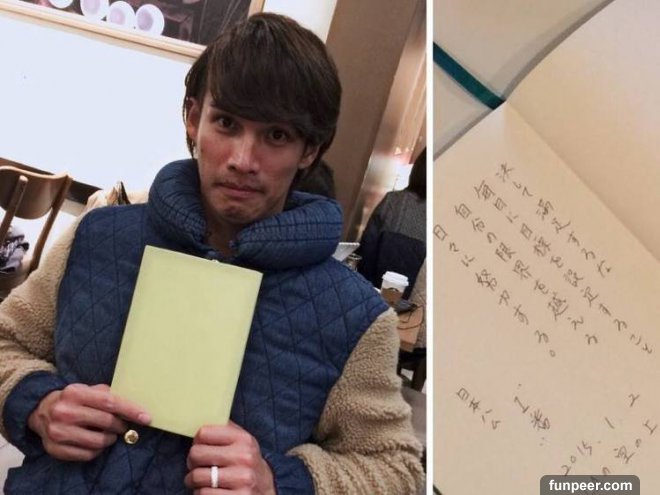 決して満足するな
毎日に目標を設定すること
自分の限界を越える
日々に努力する。
2015.1.2
の空の上
日本
funpeer.com